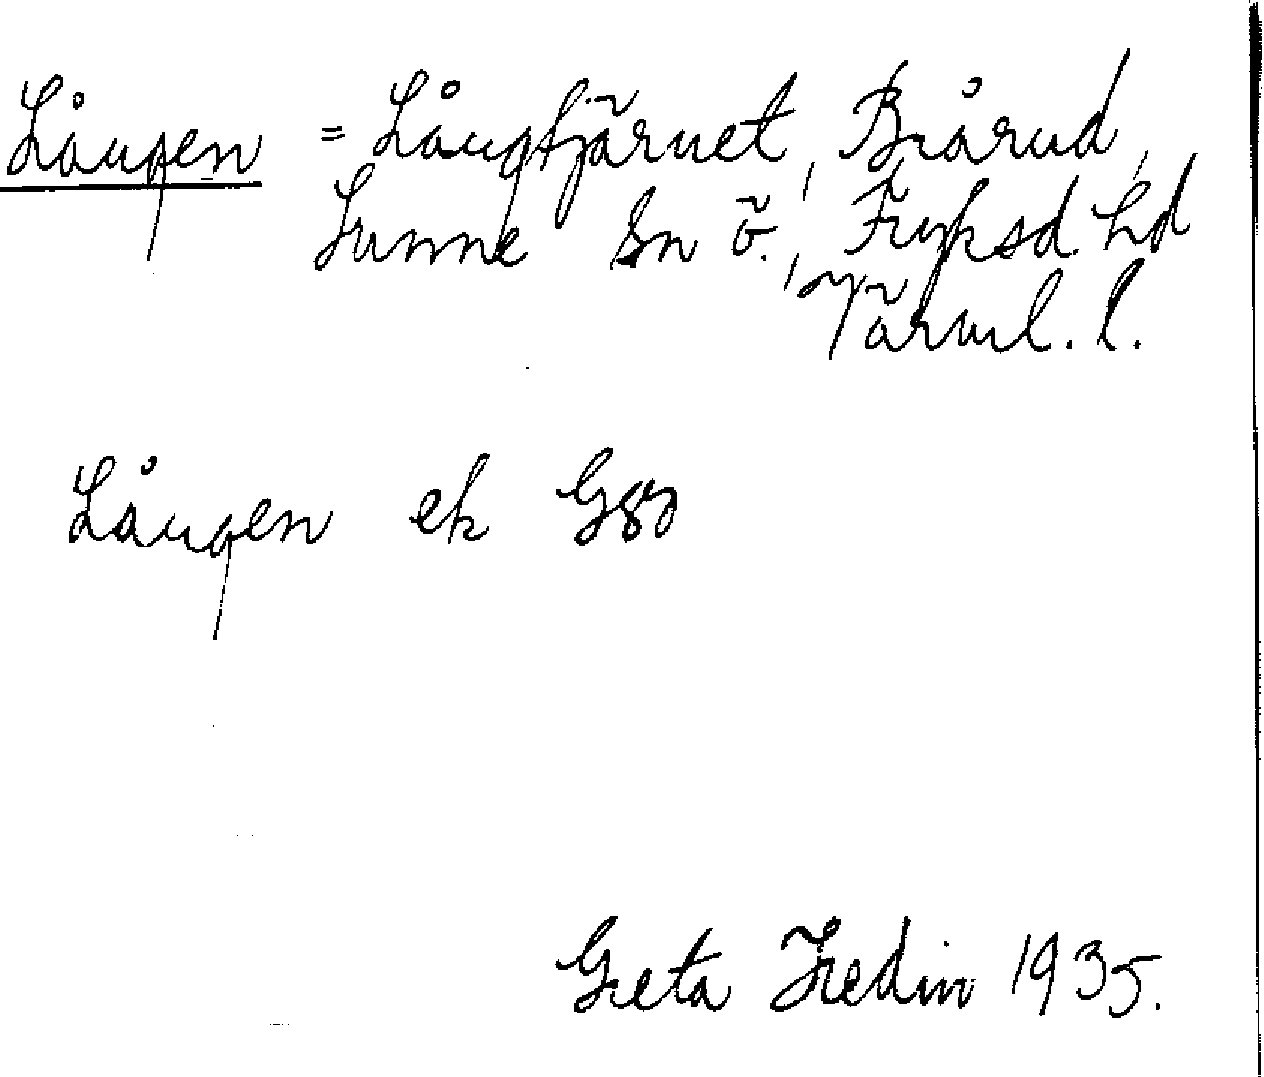 Lången = Långtjärnet, Brårud,
Sunne sn ö., Fryksd. hd
Värml. l.
Lången ek G89
Greta Hedin 1935.